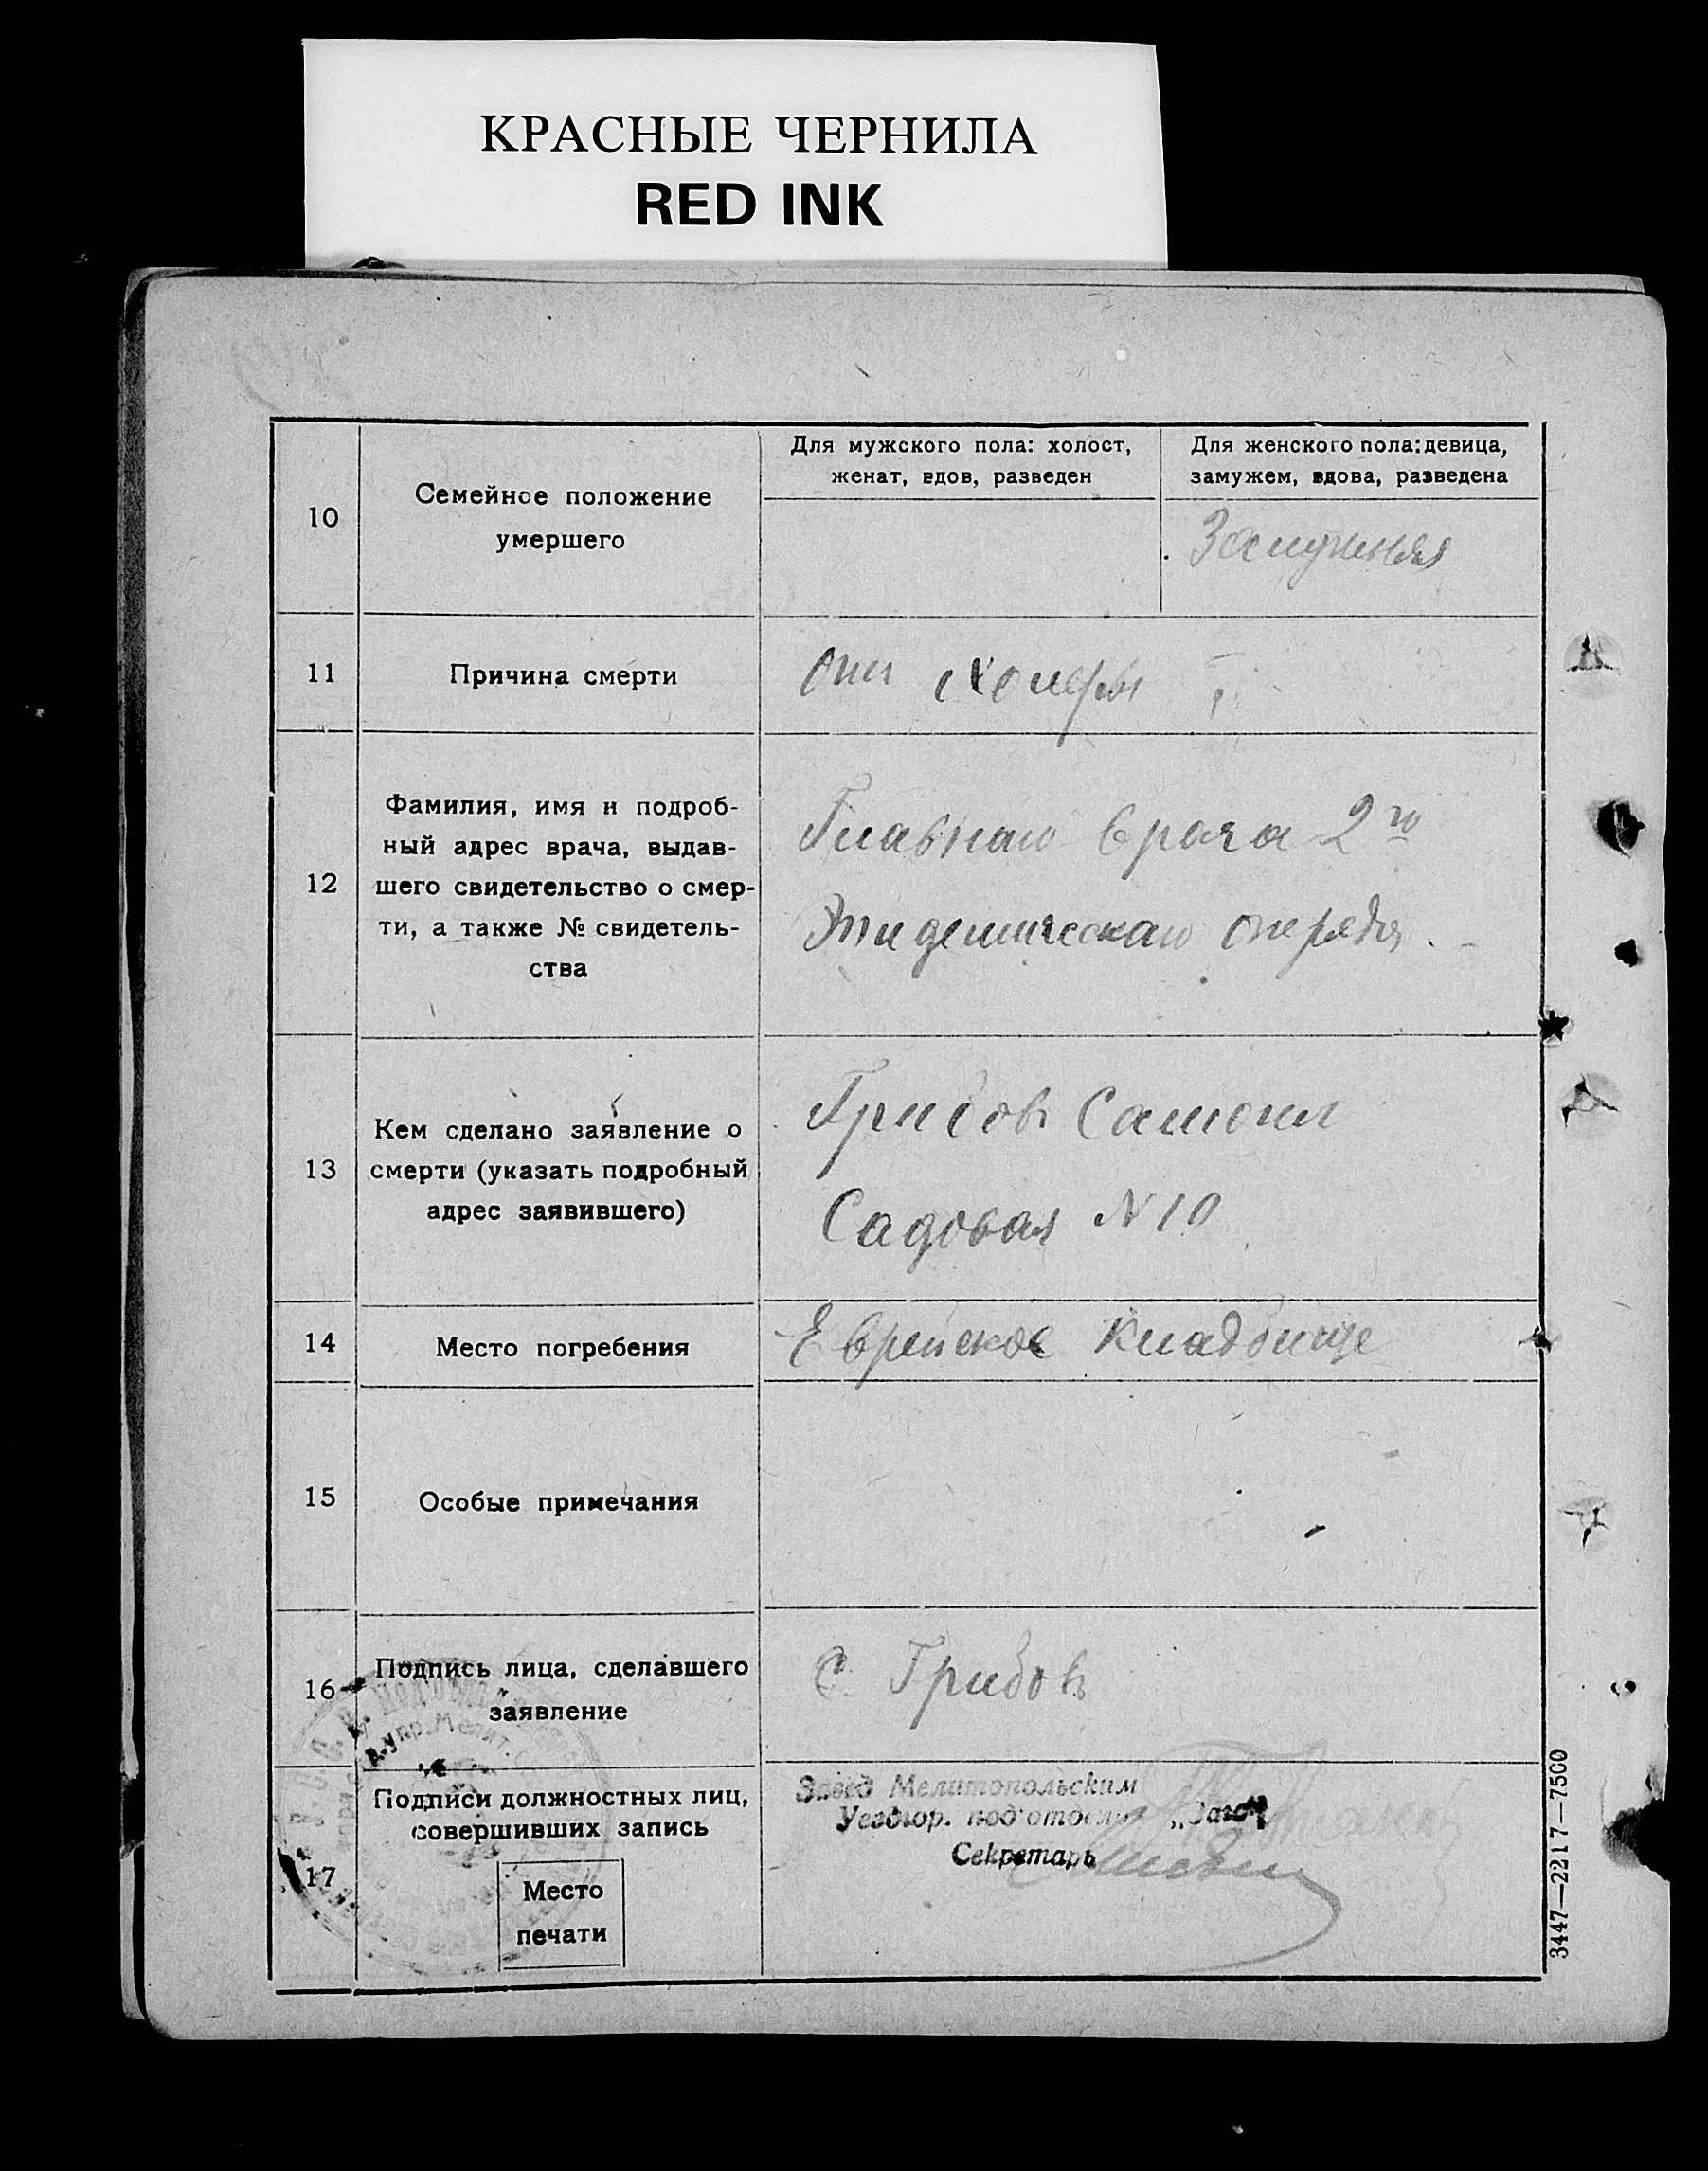 КРАСНЫЕ ЧЕРНИЛА
RED INK
10
Семейное положение
умершего
Для мужского пола: холост,
женат, вдов, разведен
Для женского пола: девица,
замужем, вдова, разведена
Замужняя
11
Причина смерти
От холеры
12
Фамилия, имя и подроб-
ный адрес врача, выдав-
шего свидетельство о смер-
ти, а также № свидетель-
ства
Главнаго врача 2го
Эпидемическаго отряда.
13
Кем сделано заявление о
смерти (указать подробный
адрес заявившего)
Грибовъ Самоил
Садовая N 10
14
Место погребения
Еврейское Кладбище
15
Особые примечания
16
Подпись лица, сделавшего
заявление
С. Грибовъ
17
Подписи должностных лиц,
совершивших запись
Место
печати
Завед Мелитопольским
Уездгор. подотдела „Загс“
Секретарь
3447—2217—7500